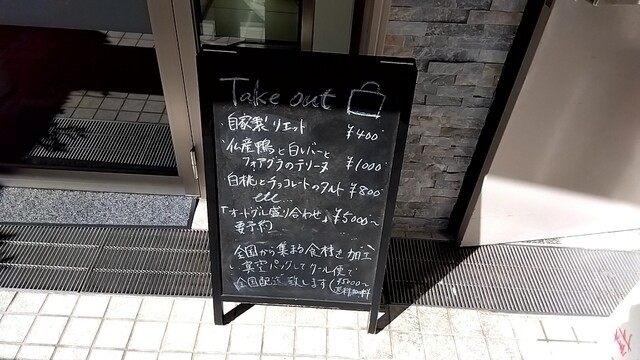 Take out
・自家製リエット ¥400-
・仏産鴨と白レバーと
フォアグラのテリーヌ ¥1000-
白桃とチョコレートのタルト ¥800-
etc...
「オードブル盛り合わせ」¥5000〜
要予約
全国から集まる食材を加工
し真空パックしてクール便で
全国配送致します(¥5000〜
送料無料)